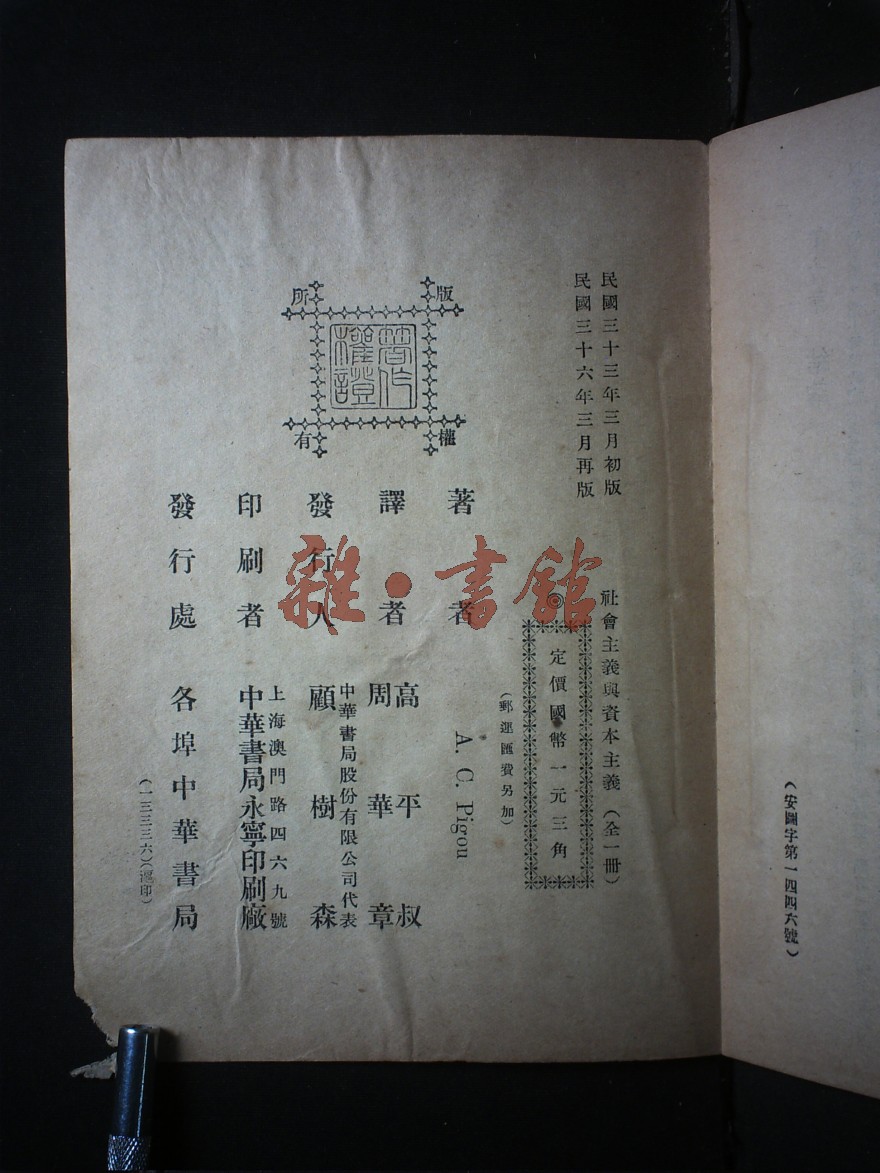 (安圖字第一四四六號)
民國三十三年三月初版
民國三十六年三月再版
社會主義與資本主義(全一冊)
◎定價國幣一元三角
(郵運匯費另加)
版權所有
著作權證
著者 A. C. Pigou
譯者 高平叔
周華章
發行人 中華書局股份有限公司代表
顧樹森
印刷者 上海澳門路四六九號
中華書局永寧印刷廠
發行處 各埠中華書局
(一三三三六)(滬印)
雜·書館